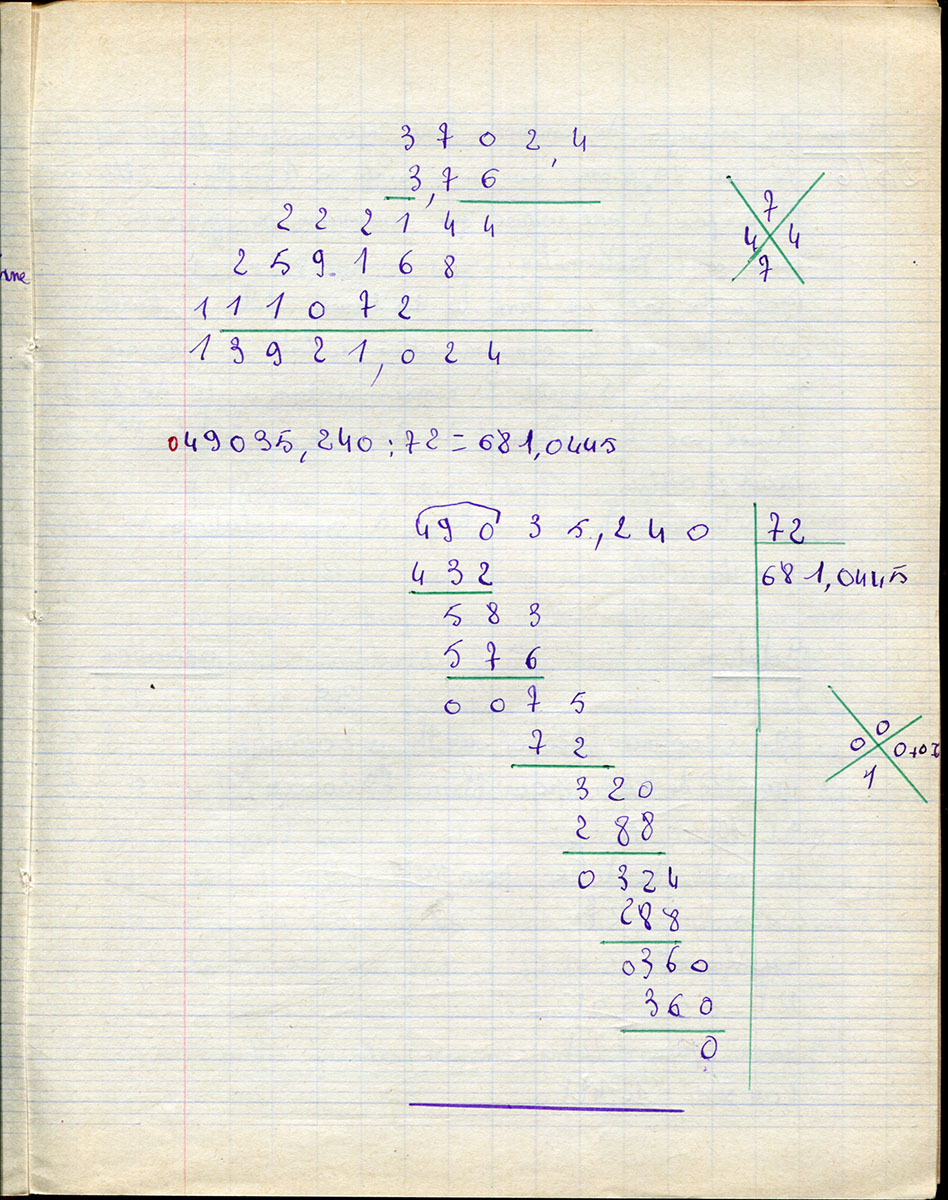 3 7 0 2,4
3,7 6
2 2 2 1 4 4
2 5 9 1 6 8
1 1 1 0 7 2
1 3 9 2 1,0 2 4
7
4 4
7
049035,240 : 72 = 681,0445
4 9 0 3 5,2 4 0 72
4 3 2 681,0445
5 8 3
5 7 6
0 0 7 5
7 2
0
0 0+0
1
3 2 0
2 8 8
0 3 2 4
2 8 8
0 3 6 0
3 6 0
0